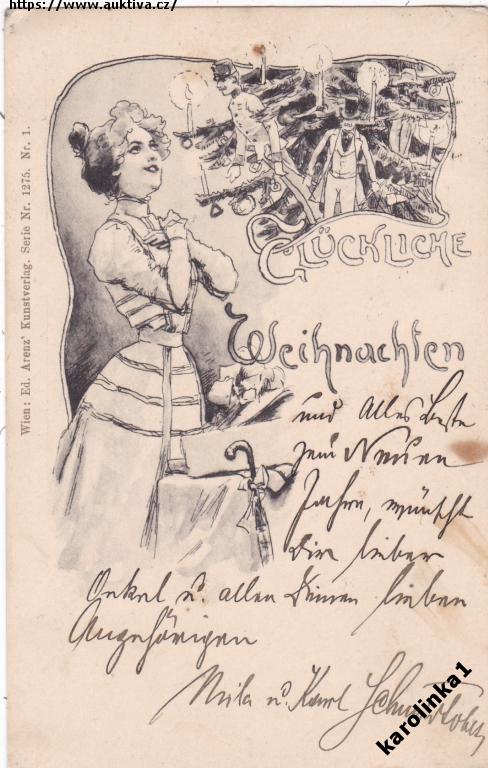 https://www.auktiva.cz/
Wien: Ed. Arenz' Kunstverlag. Serie Nr. 1275. Nr. 1.
GLÜCKLICHE
Weihnachten
und Alles Beste
zum Neuen
Jahre, wünscht
Dir lieber
Onkel u. allen Deinen lieben
Angehörigen
Mila u. Karl
karolinka1